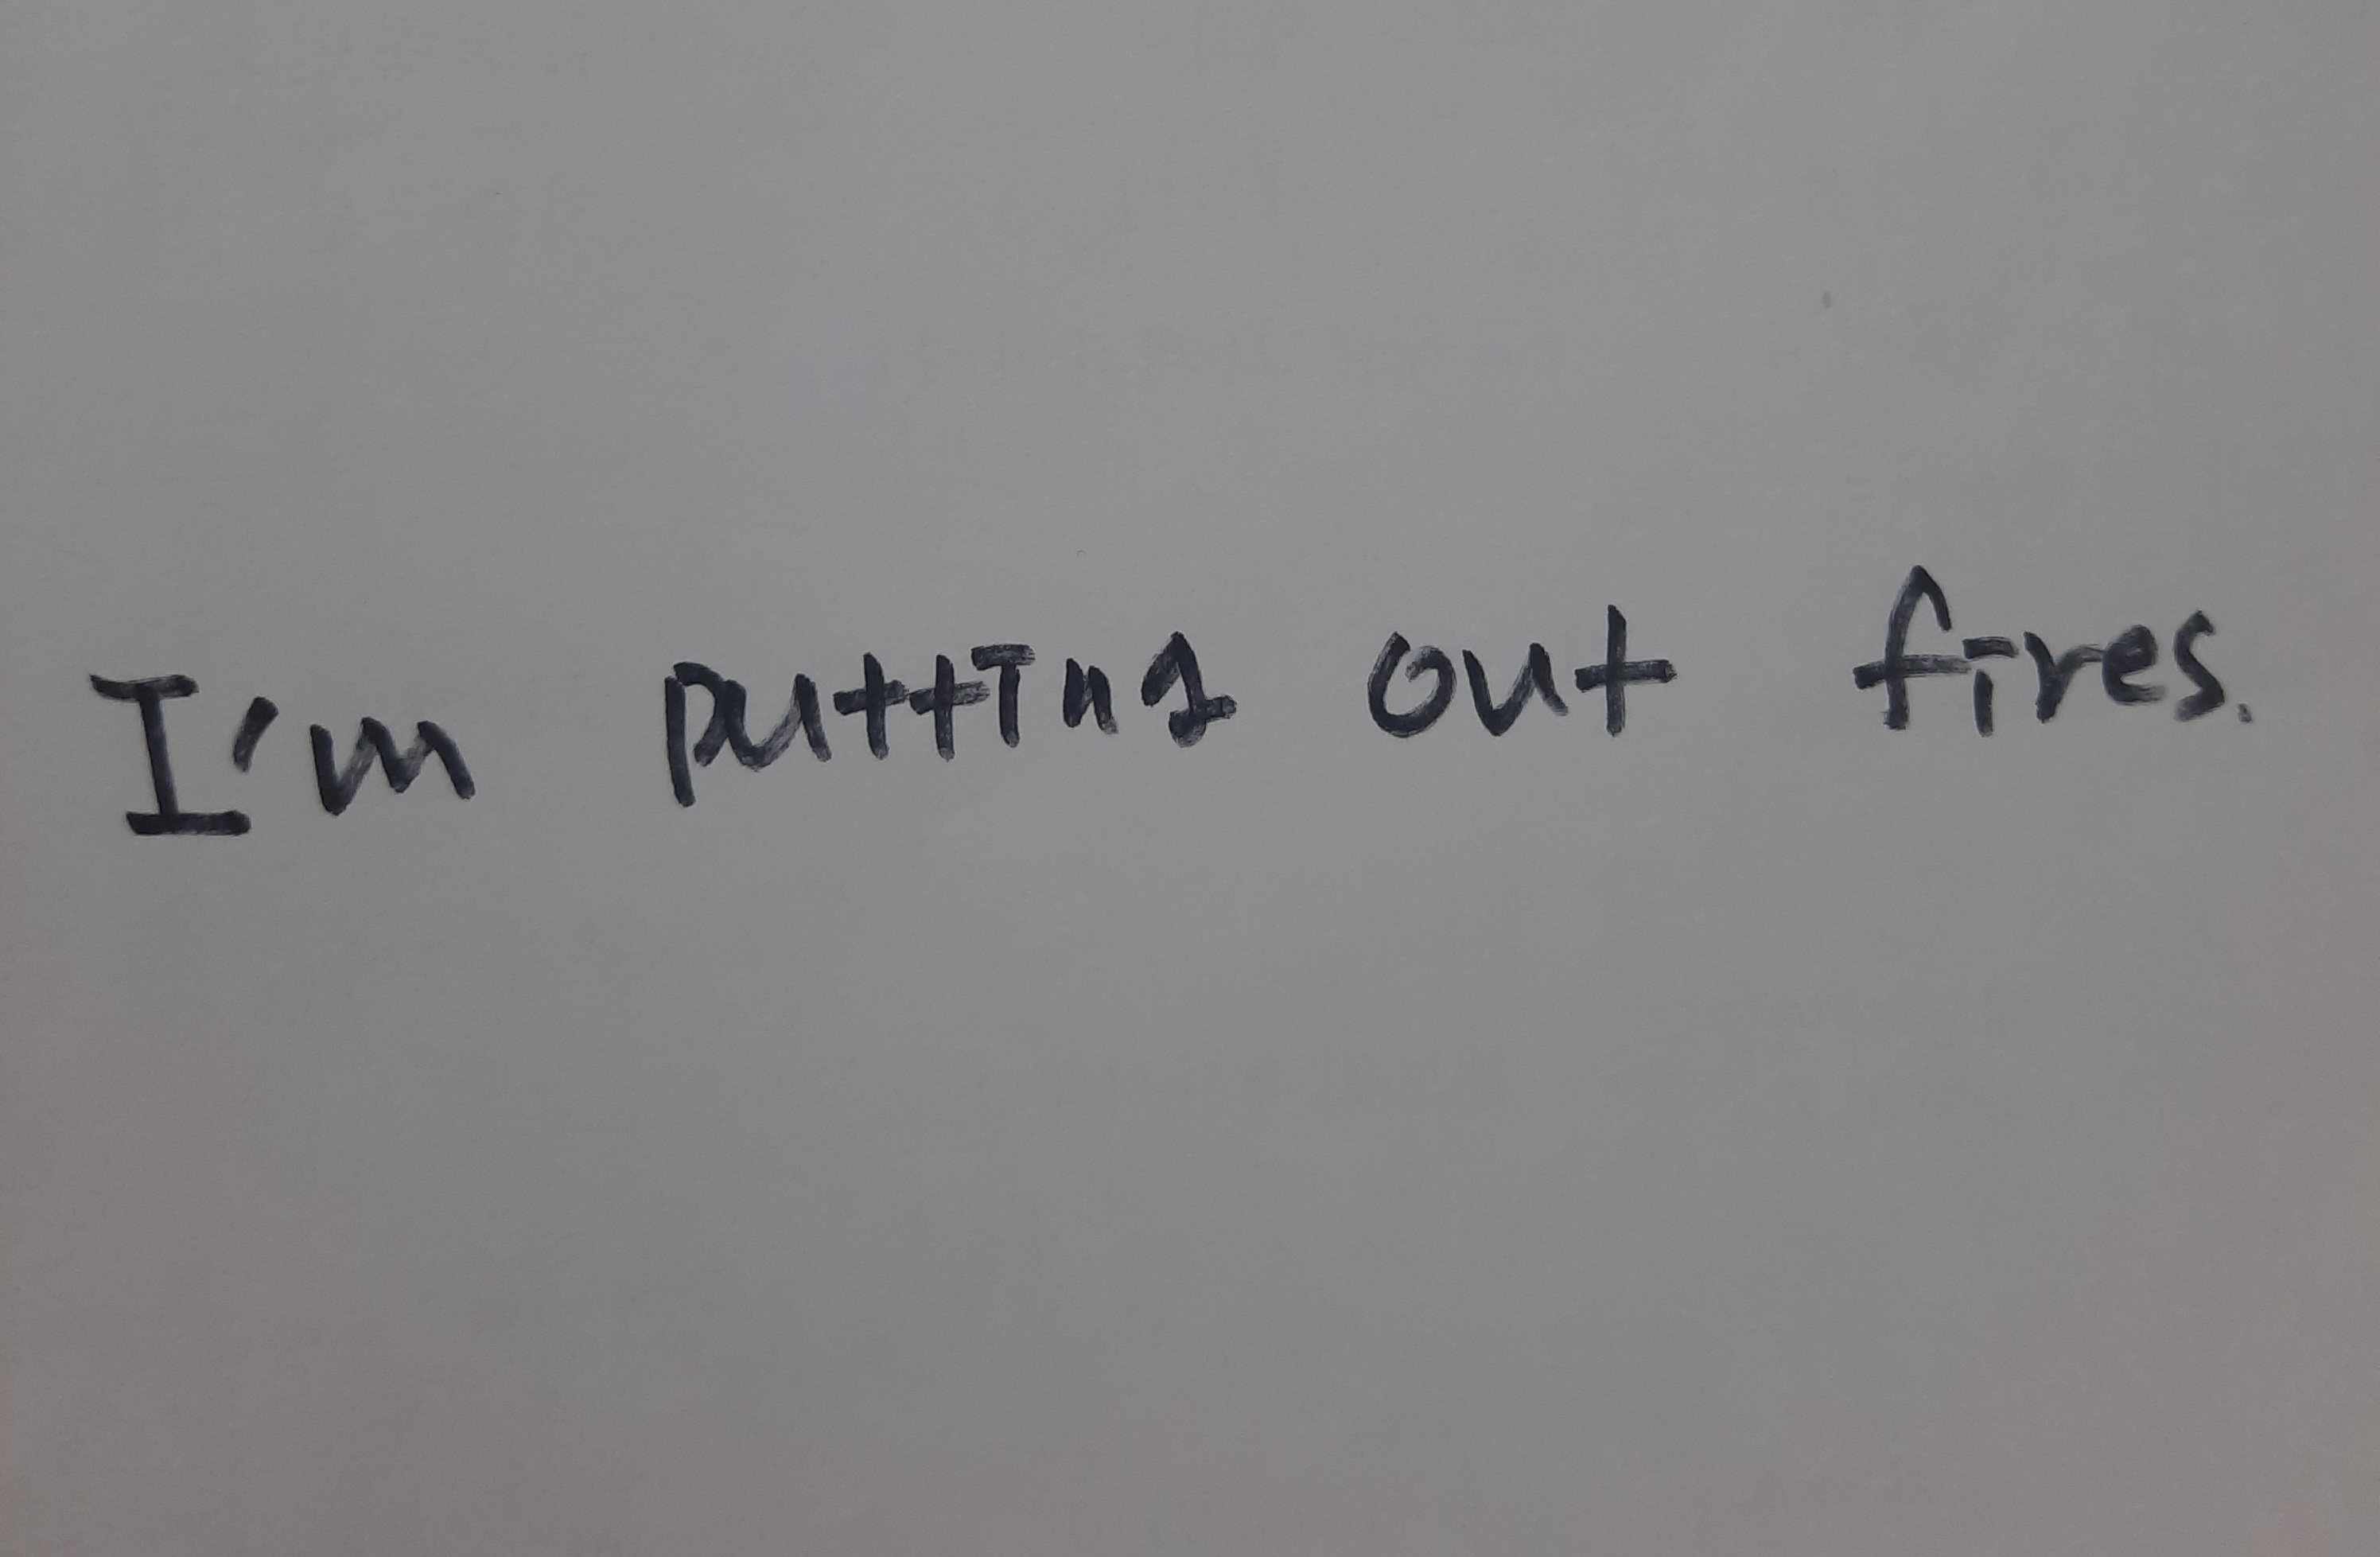 I'm putting out fires.